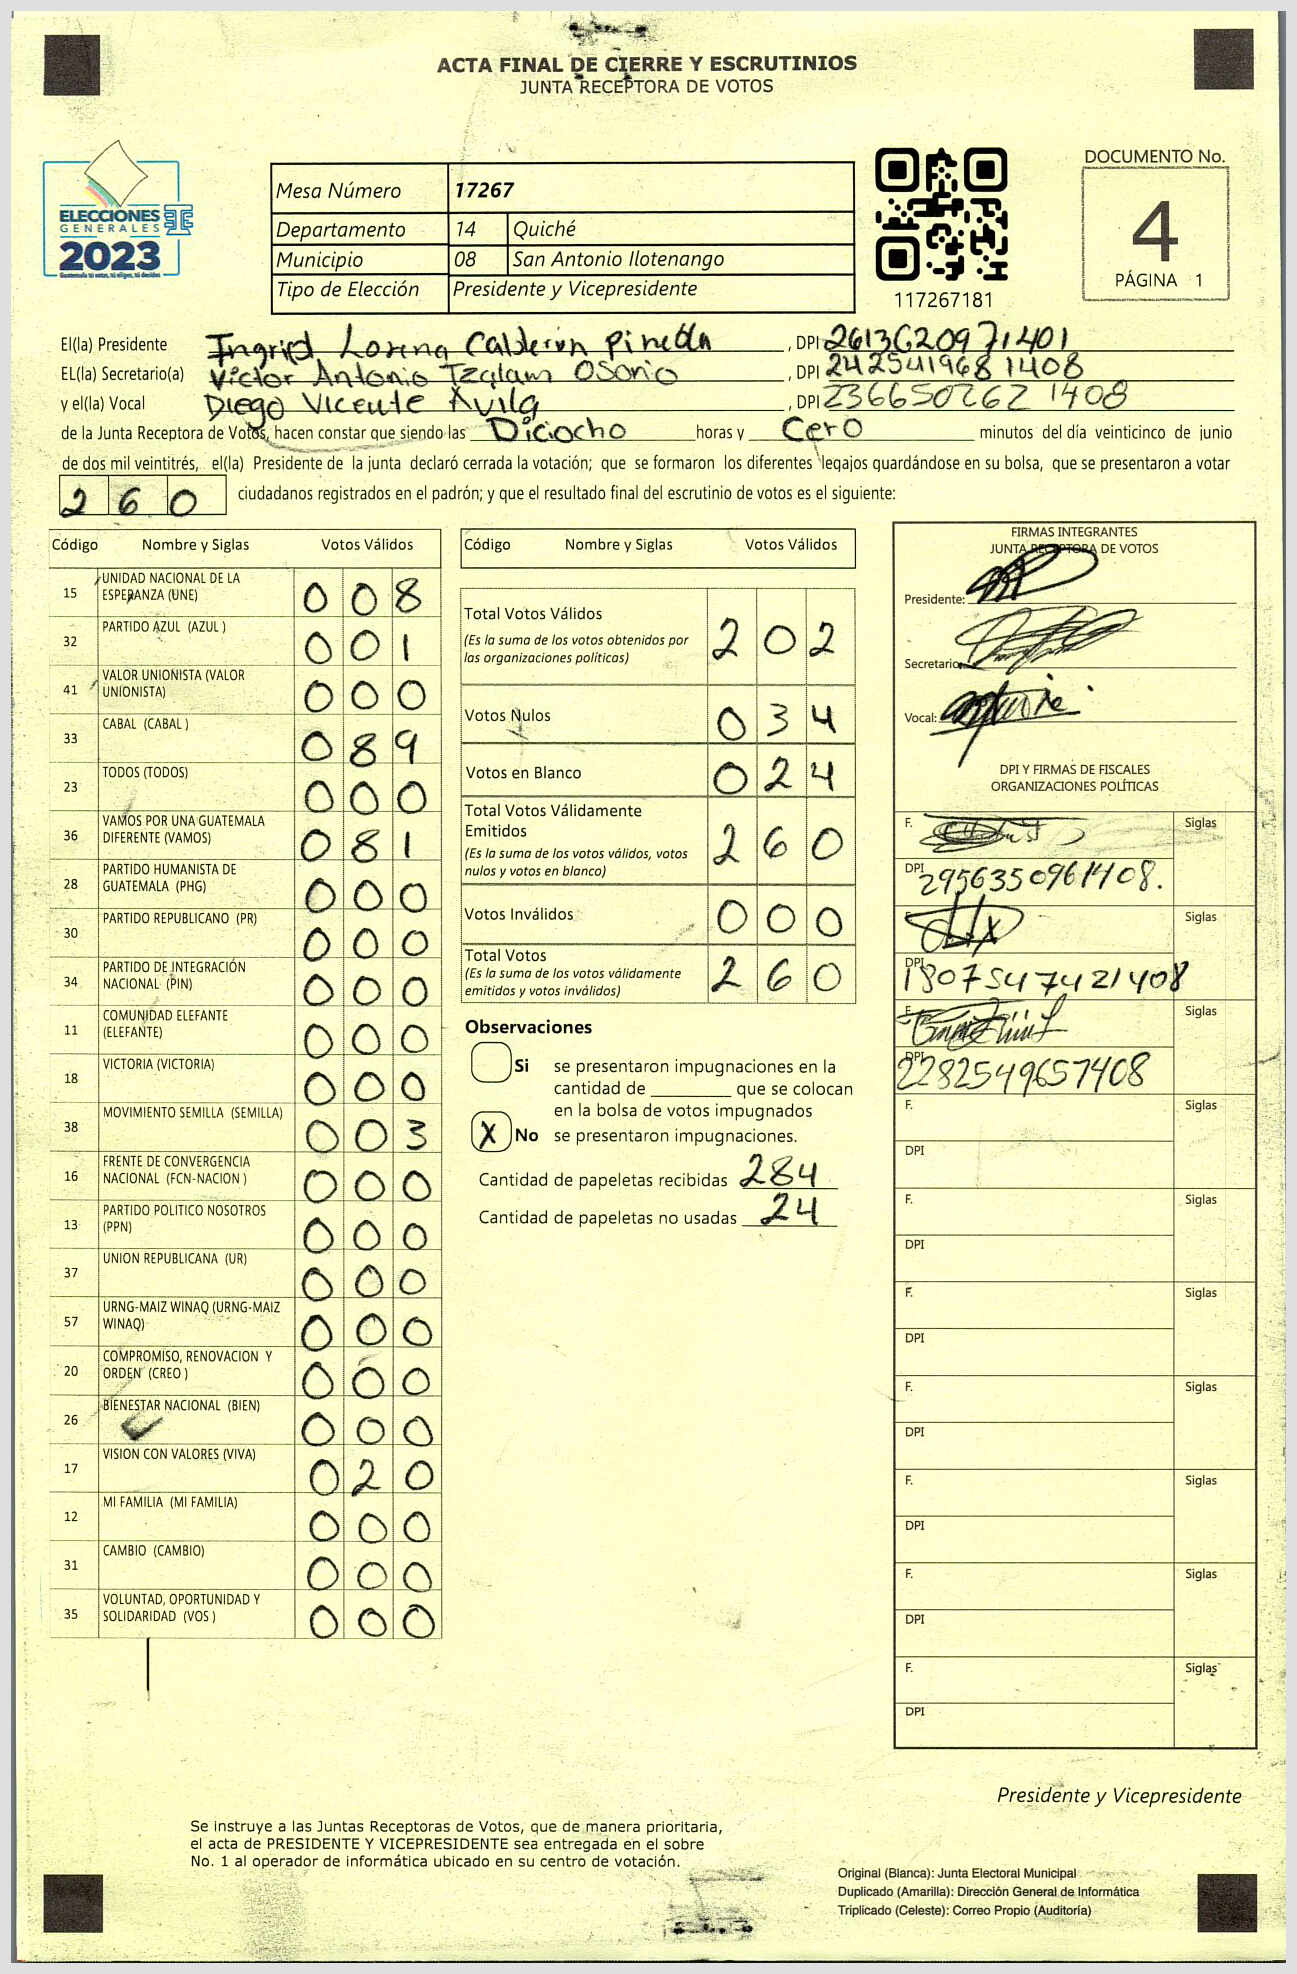 ACTA FINAL DE CIERRE Y ESCRUTINIOS
JUNTA RECEPTORA DE VOTOS
ELECCIONES
GENERALES
2023
Guatemala tú votas, tú eliges, tú decides
Mesa Número 17267
Departamento 14 Quiché
Municipio 08 San Antonio Ilotenango
Tipo de Elección Presidente y Vicepresidente
117267181
DOCUMENTO No.
4
PÁGINA 1
El(la) Presidente Ingrid Lorena Calderón Pineda, DPI 2613620971401
EL(la) Secretario(a) Victor Antonio Tzalam Osorio, DPI 2425419681408
y el(la) Vocal Diego Vicente Avila, DPI 2366502621408
de la Junta Receptora de Votos, hacen constar que siendo las Diciocho horas y Cero minutos del día veinticinco de junio
de dos mil veintitrés, el(la) Presidente de la junta declaró cerrada la votación; que se formaron los diferentes legajos quardándose en su bolsa, que se presentaron a votar
260 ciudadanos registrados en el padrón; y que el resultado final del escrutinio de votos es el siguiente:
Código Nombre y Siglas Votos Válidos
15 UNIDAD NACIONAL DE LA ESPERANZA (UNE) 008
32 PARTIDO AZUL (AZUL ) 001
41 VALOR UNIONISTA (VALOR UNIONISTA) 000
33 CABAL (CABAL ) 089
23 TODOS (TODOS) 000
36 VAMOS POR UNA GUATEMALA DIFERENTE (VAMOS) 081
28 PARTIDO HUMANISTA DE GUATEMALA (PHG) 000
30 PARTIDO REPUBLICANO (PR) 000
34 PARTIDO DE INTEGRACIÓN NACIONAL (PIN) 000
11 COMUNIDAD ELEFANTE (ELEFANTE) 000
18 VICTORIA (VICTORIA) 000
38 MOVIMIENTO SEMILLA (SEMILLA) 003
16 FRENTE DE CONVERGENCIA NACIONAL (FCN-NACION ) 000
13 PARTIDO POLITICO NOSOTROS (PPN) 000
37 UNION REPUBLICANA (UR) 000
57 URNG-MAIZ WINAQ (URNG-MAIZ WINAQ) 000
20 COMPROMISO, RENOVACION Y ORDEN (CREO ) 000
26 BIENESTAR NACIONAL (BIEN) 000
17 VISION CON VALORES (VIVA) 020
12 MI FAMILIA (MI FAMILIA) 000
31 CAMBIO (CAMBIO) 000
35 VOLUNTAD, OPORTUNIDAD Y SOLIDARIDAD (VOS ) 000
Código Nombre y Siglas Votos Válidos
Total Votos Válidos 202
(Es la suma de los votos obtenidos por
las organizaciones políticas)
Votos Nulos 034
Votos en Blanco 024
Total Votos Válidamente
Emitidos 260
(Es la suma de los votos válidos, votos
nulos y votos en blanco)
Votos Inválidos 000
Total Votos 260
(Es la suma de los votos válidamente
emitidos y votos inválidos)
Observaciones
Si se presentaron impugnaciones en la
cantidad de ________ que se colocan
en la bolsa de votos impugnados
X No se presentaron impugnaciones.
Cantidad de papeletas recibidas 284
Cantidad de papeletas no usadas 24
FIRMAS INTEGRANTES
JUNTA RECEPTORA DE VOTOS
Presidente:
Secretario:
Vocal:
DPI Y FIRMAS DE FISCALES
ORGANIZACIONES POLÍTICAS
F. Siglas
DPI 2956350961408.
F. Siglas
DPI 1807547421408
F. Siglas
DPI 2282549657408
F. Siglas
DPI
F. Siglas
DPI
F. Siglas
DPI
F. Siglas
DPI
F. Siglas
DPI
F. Siglas
DPI
F. Siglas
DPI
Presidente y Vicepresidente
Se instruye a las Juntas Receptoras de Votos, que de manera prioritaria,
el acta de PRESIDENTE Y VICEPRESIDENTE sea entregada en el sobre
No. 1 al operador de informática ubicado en su centro de votación.
Original (Blanca): Junta Electoral Municipal
Duplicado (Amarilla): Dirección General de Informática
Triplicado (Celeste): Correo Propio (Auditoría)